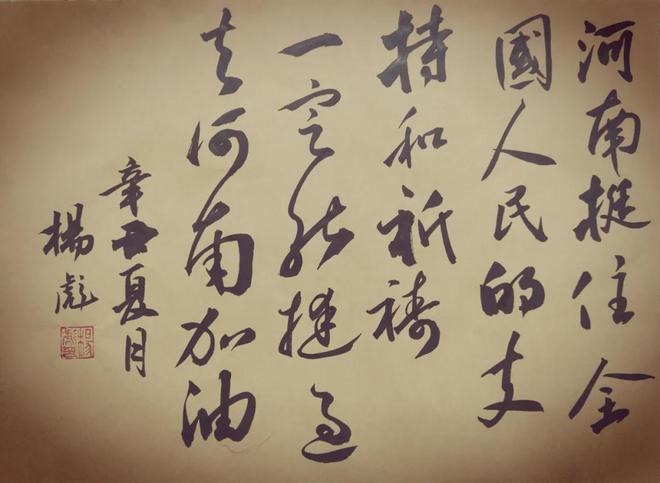 河南挺住全
國人民的支
持和祈祷
一定能挺过
去河南加油
辛丑夏月
楊彪